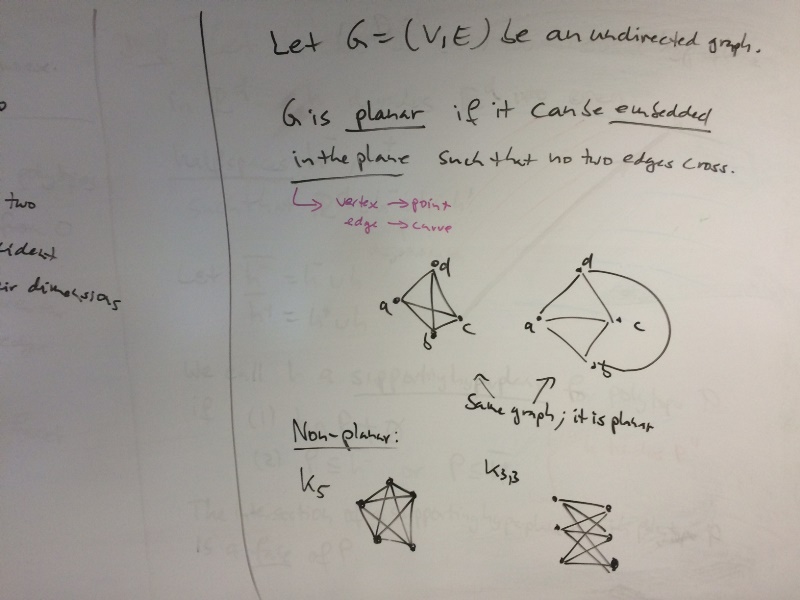 two
dimensions
Let G = (V, E) be an undirected graph.
G is planar if it can be embedded
in the plane such that no two edges cross.
vertex → point
edge → curve
d
a
c
b
d
a
c
b
Same graph; it is planar
Non-planar:
K5
K3,3